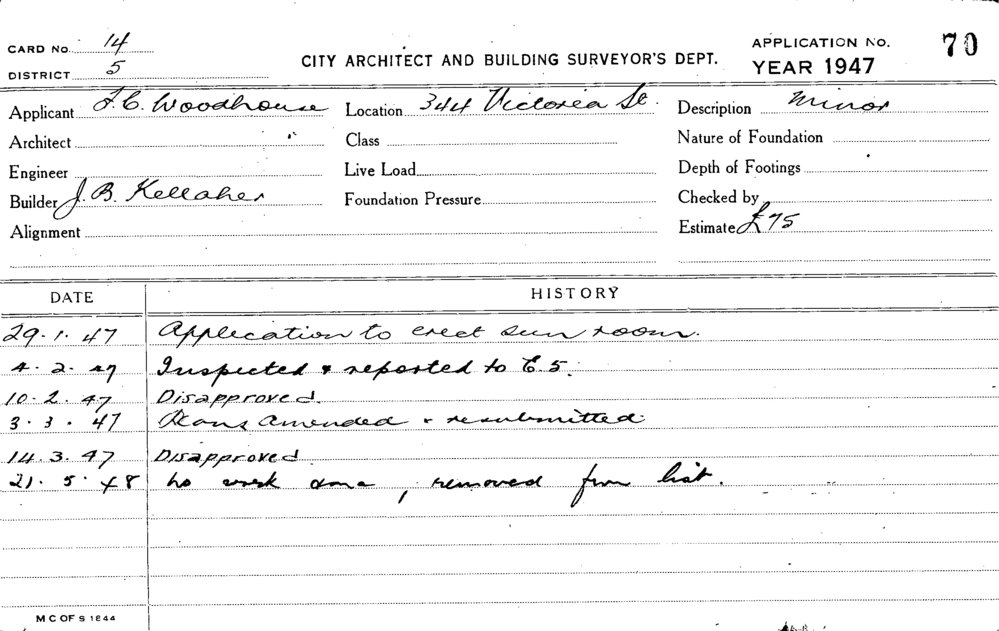 CARD No. 14
DISTRICT 5
CITY ARCHITECT AND BUILDING SURVEYOR'S DEPT.
APPLICATION No. 70
YEAR 1947
Applicant F.C. Woodhouse Location 344 Victoria St. Description Minor
Architect Class Nature of Foundation
Engineer Live Load Depth of Footings
Builder J. B. Kellaher Foundation Pressure Checked by
Alignment Estimate £75
DATE HISTORY
29.1.47 Application to erect sun room.
4.2.47 Inspected & reported to E.5.
10.2.47 Disapproved.
3.3.47 Plans amended & resubmitted
14.3.47 Disapproved
21.5.48 no work done, removed from list.
M C OF S 1844